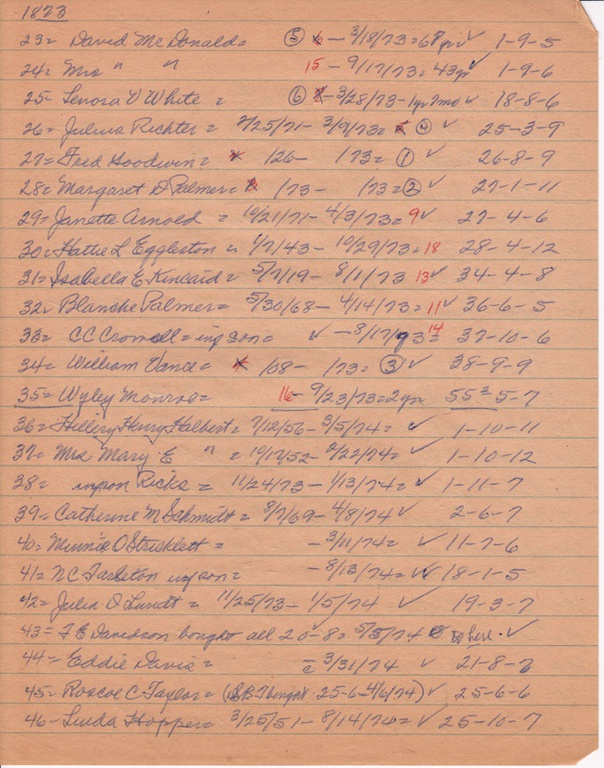 1873
23= David McDonald= ⑤ 6 - 3/18/73=68 yrs ✓ 1-9-5
24= Mrs " " 15 - 9/17/73=43 yr ✓ 1-9-6
25= Lenora V White = ⑥ - 3/28/73-1yr 7mo ✓ 18-8-6
26= Julius Richter= 2/25/71- 3/9/73= ④ ✓ 25-3-9
27= Fred Hoodwin= 126- 173= ① ✓ 26-8-9
28= Margaret D Palmer= 173- 173=② ✓ 27-1-11
29= Janette Arnold = 10/21/71-4/3/73= 9 ✓ 27-4-6
30= Hattie L Eggleston = 6/7/43- 10/29/73= 18 28-4-12
31= Isabella E Kincaid= 5/7/19- 8/1/73 13 ✓ 34-4-8
32= Blanche Palmer= 5/30/68- 4/14/73= 11 ✓ 36-6-5
33= CC Cromell= inf son= ✓ -8/17/73= 14 37-10-6
34= William Vance= 108- 173= ③ ✓ 38-9-9
35= Wyley Monroe= 16- 9/23/73=2 yr 55 2 5-7
36= Hillery Henry Halbert= 7/12/56-3/5/74= ✓ 1-10-11
37= Mrs Mary E " = 10/17/52- 2/22/74= ✓ 1-10-12
38= infson Ricks = 11/24/73- 1/13/74= ✓ 1-11-7
39= Catherine M Schmitt= 8/7/69- 4/8/74 ✓ 2-6-7
40= Minnie O Stricklett= -3/11/74= ✓ 11-7-6
41= NC Tarleton inf son= -8/13/74= ✓ 18-1-5
42= Julia O Lundt= 11/25/73- 1/5/74 ✓ 19-3-7
43= F E Davidson bought all 20-8= 5/5/74 to here. ✓
44= Eddie Davis= = 3/31/74 ✓ 21-8-7
45= Roscoe C Taylor= (S.B.T bought 25-6-4/6/74) ✓ 25-6-6
46- Linda Hopper= 3/25/51- 8/14/74= ✓ 25-10-7